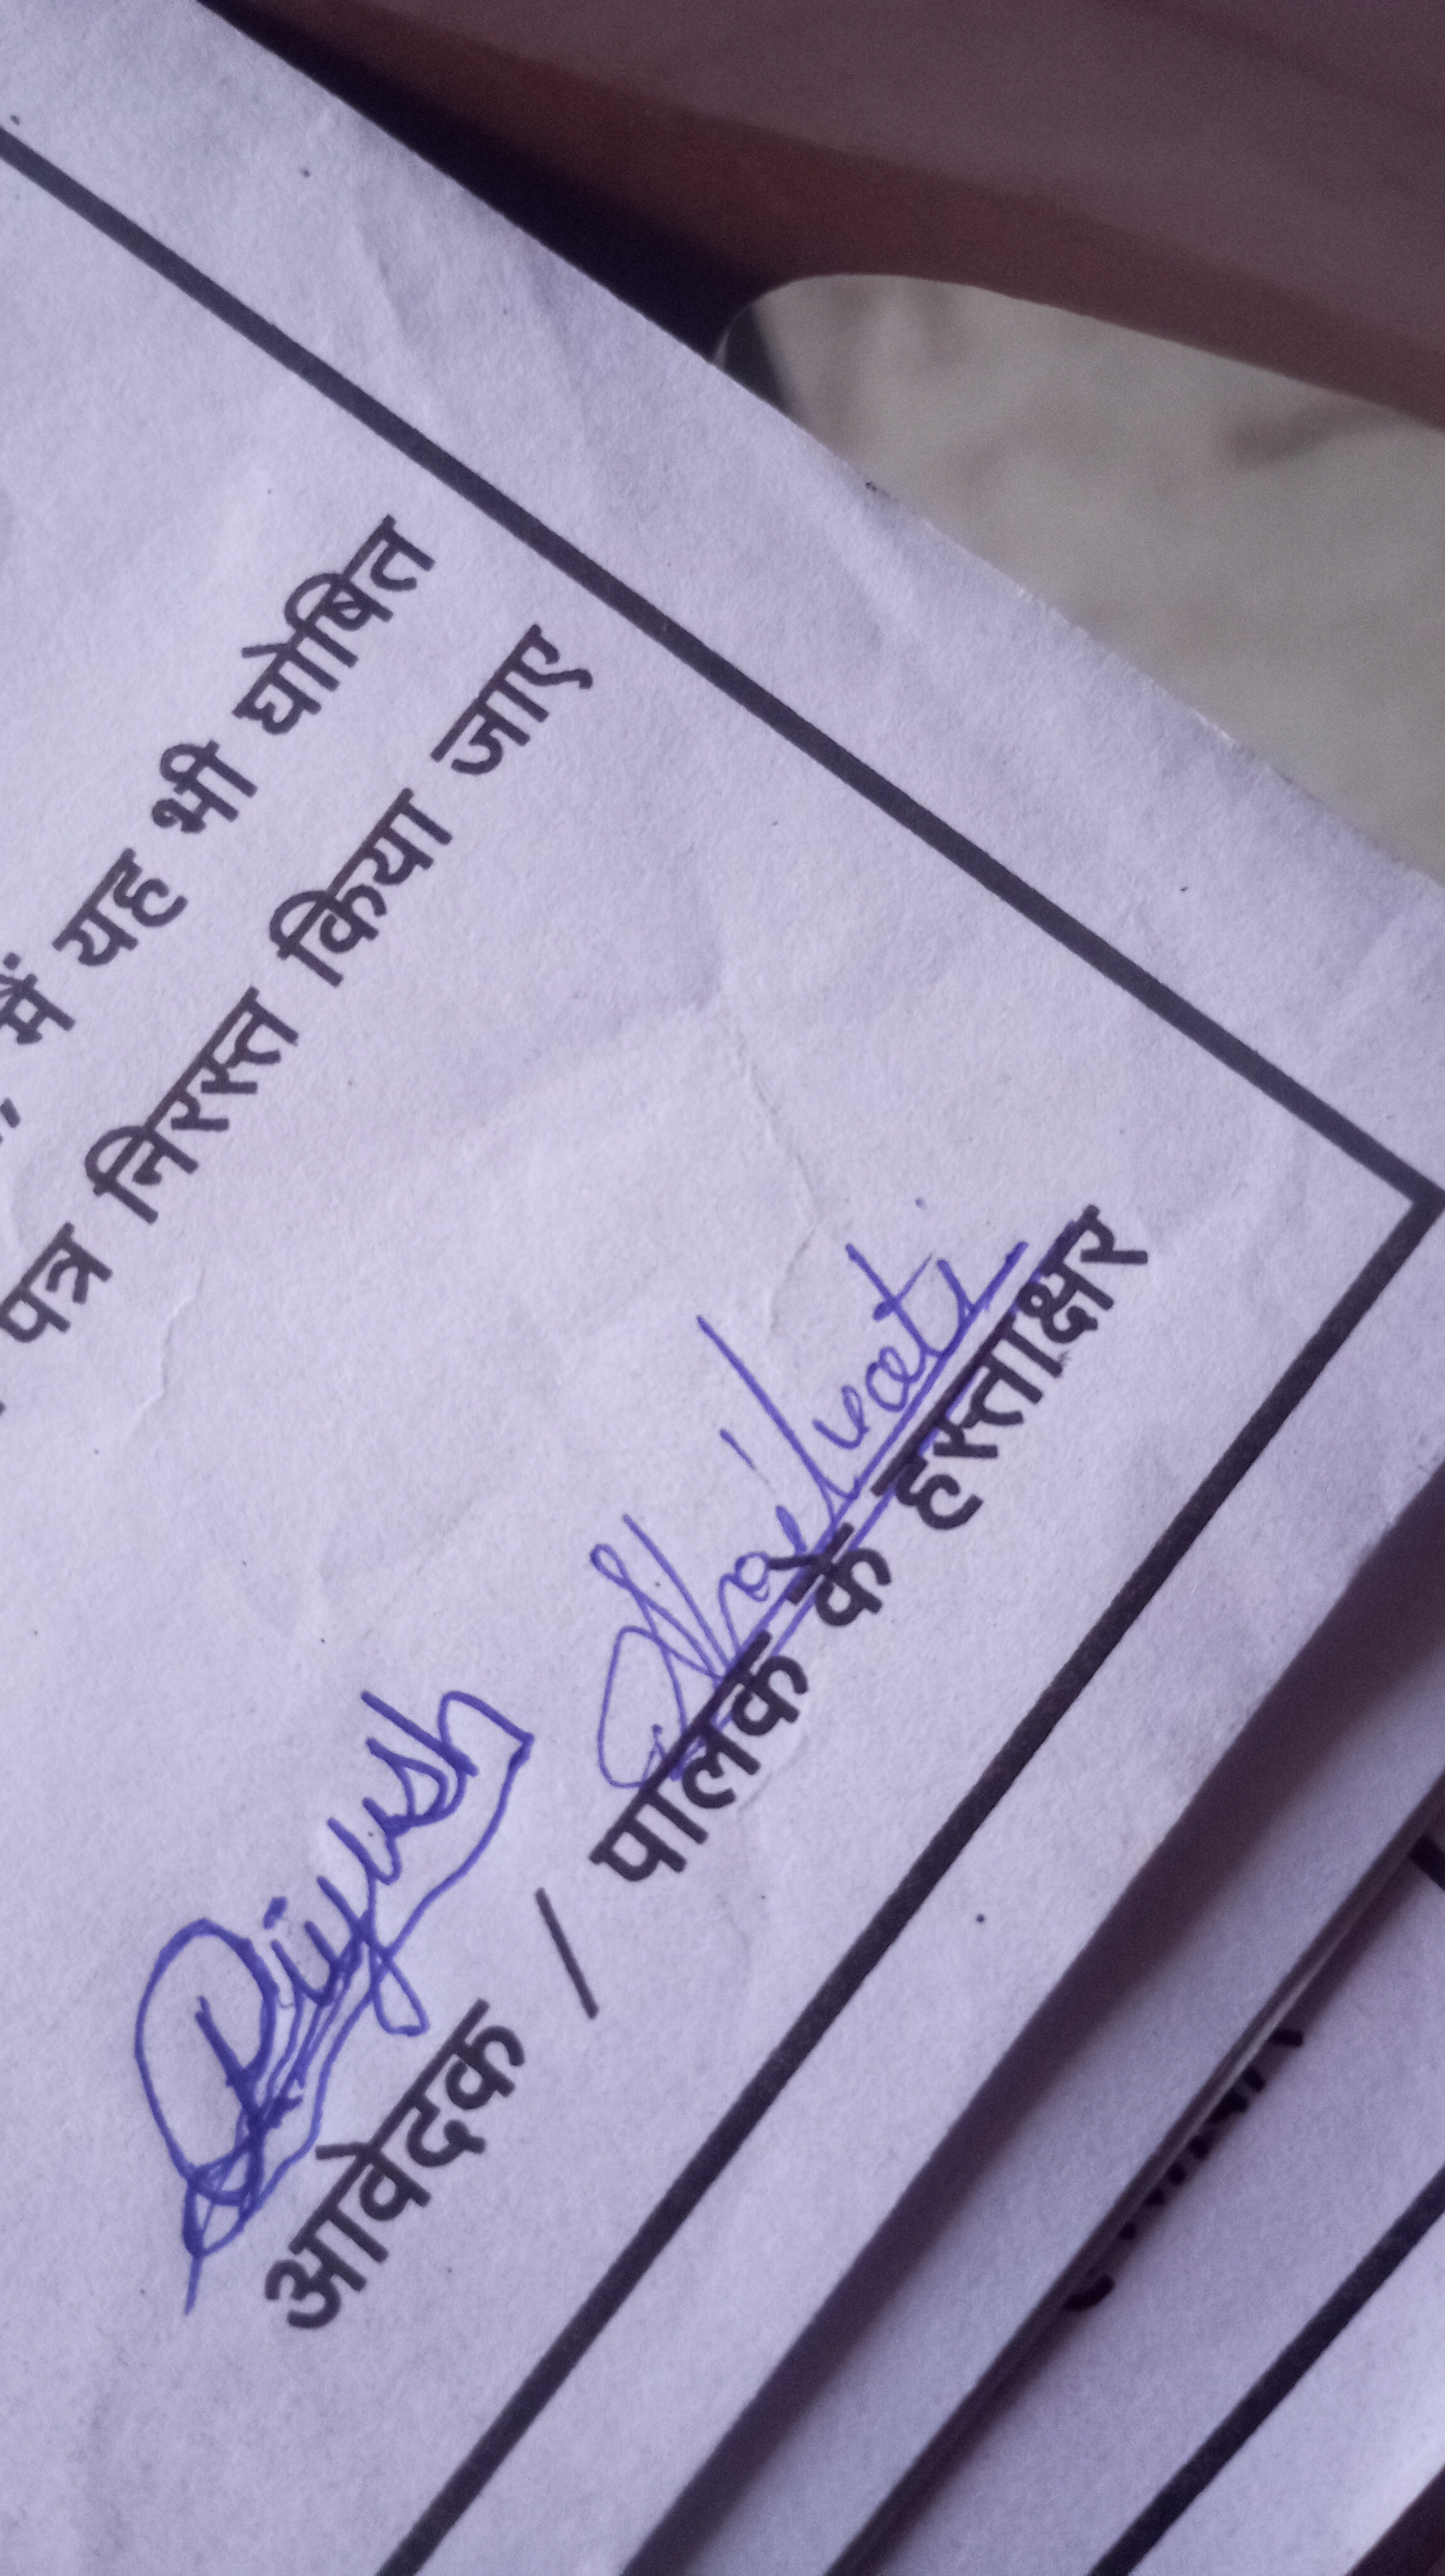 में यह भी घोषित
पत्र निरस्त किया जाए
Piyush Shailwati
आवेदक / पालक के हस्ताक्षर